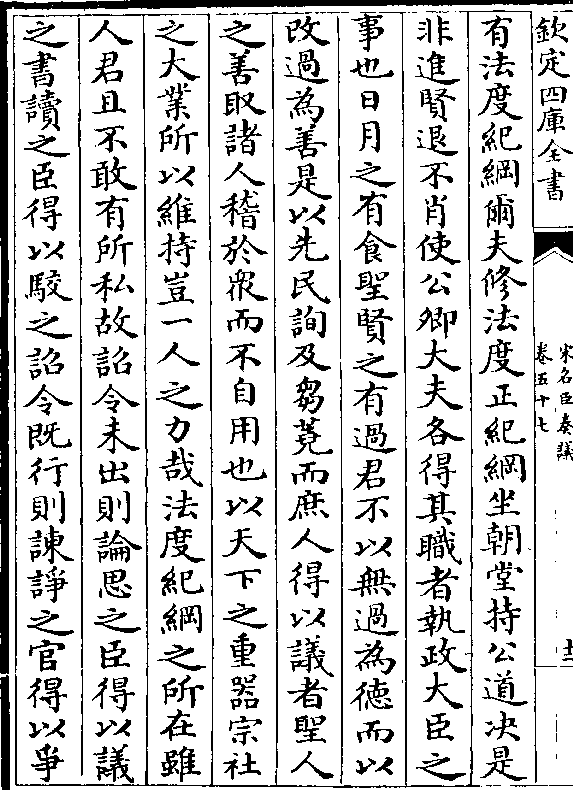 欽定四庫全書
宋名臣奏議
卷五十七
十二
有法度紀綱爾夫修法度正紀綱坐朝堂持公道决是
非進賢退不肖使公卿大夫各得其職者執政大臣之
事也日月之有食聖賢之有過君不以無過為徳而以
改過為善是以先民詢及芻蕘而庶人得以議者聖人
之善取諸人稽於衆而不自用也以天下之重器宗社
之大業所以維持豈一人之力哉法度紀綱之所在雖
人君且不敢有所私故詔令未出則論思之臣得以議
之書讀之臣得以駮之詔令既行則諫諍之官得以爭